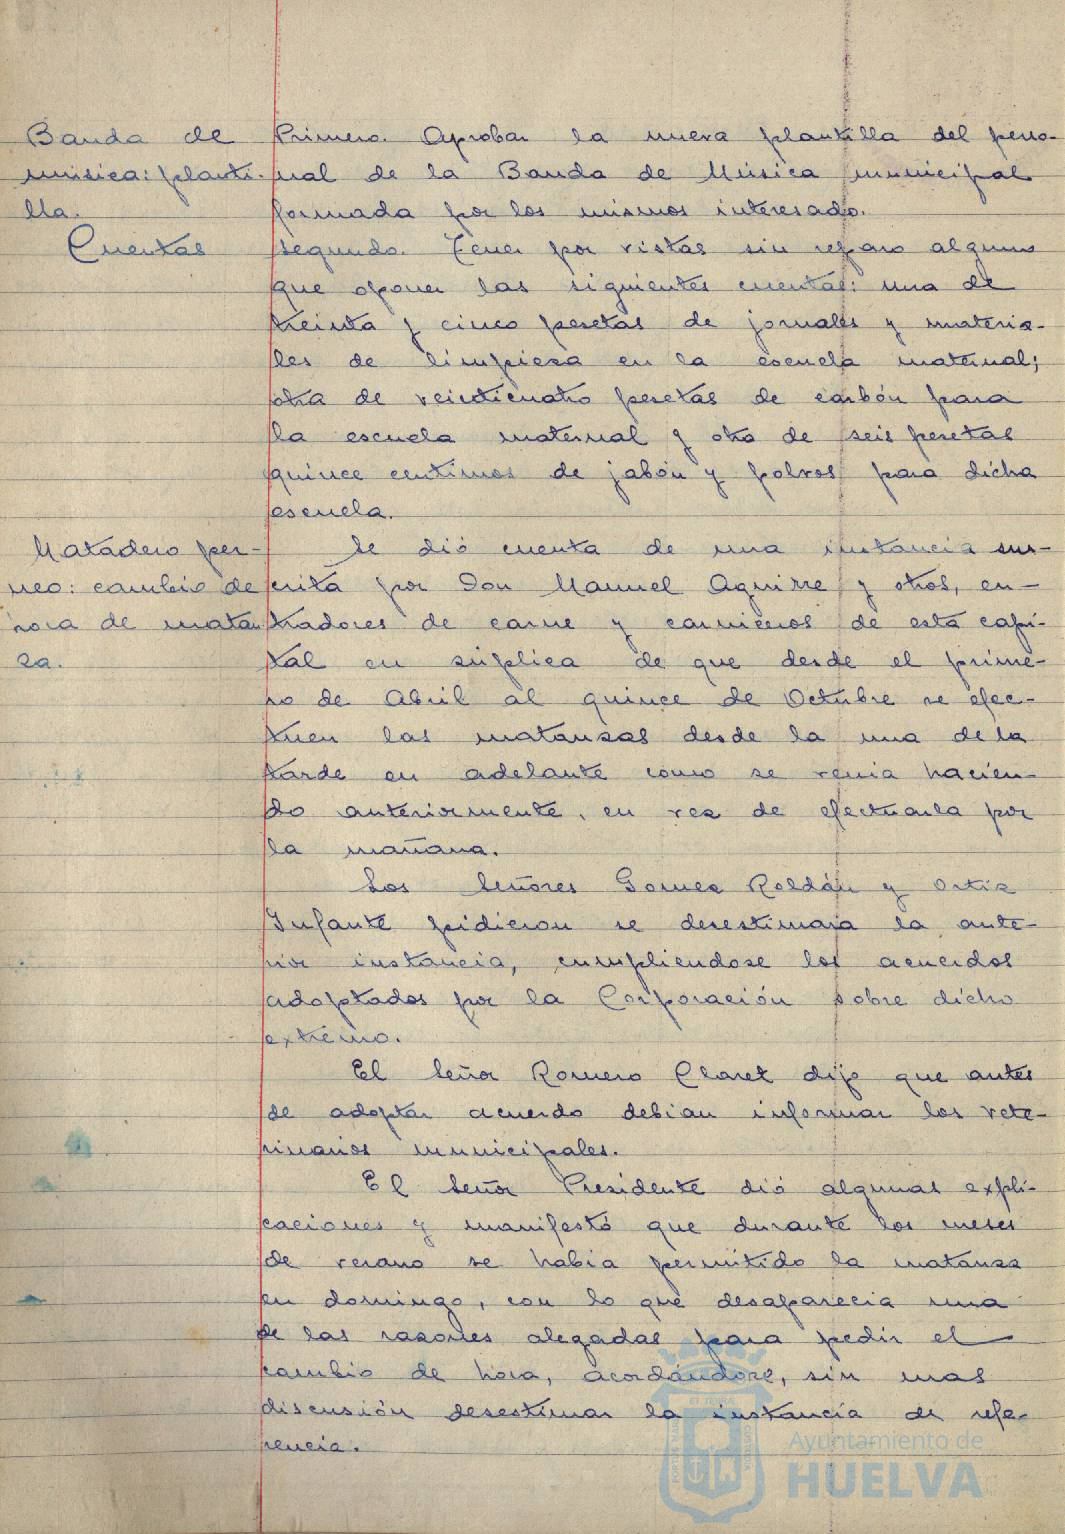 Banda de
música: planti-
lla.
Cuentas
Primero. Aprobar la nueva plantilla del perso-
nal de la Banda de Música municipal
formada por los mismos interesado.
segundo. Tener por vistas sin reparo alguno
que oponer las siguientes cuentas: una de
treinta y cinco pesetas de jornales y materia-
les de limpieza en la escuela maternal;
otra de veinticuatro pesetas de carbón para
la escuela maternal y otra de seis pesetas
quince centimos de jabón y polvos para dicha
escuela.
Matadero per-
neo: cambio de
hora de matan
za.
Se dió cuenta de una instancia sus-
crita por Don Manuel Aguirre y otros, en-
tradores de carne y carniceros de esta capi-
tal en súplica de que desde el prime-
ro de Abril al quince de Octubre se efec-
tuen las matanzas desde la una de la
tarde en adelante como se venia hacien-
do anteriormente, en vez de efectuarla por
la mañana.
Los Señores Gomez Roldán y Ortiz
Infante pidieron se desestimara la ante-
rior instancia, cumpliendose los acuerdos
adoptados por la Corporación sobre dicho
extremo.
El Señor Romero Claret dijo que antes
de adoptar acuerdo debian informar los vete-
rinarios municipales.
El Señor Presidente dió algunas expli-
caciones y manifestó que durante los meses
de verano se habia permitido la matanza
en domingo, con lo que desaparecia una
de las razones alegadas para pedir el
cambio de hora, acordándose, sin mas
discusión desestimar la instancia de refe-
rencia.
Ayuntamiento de
HUELVA